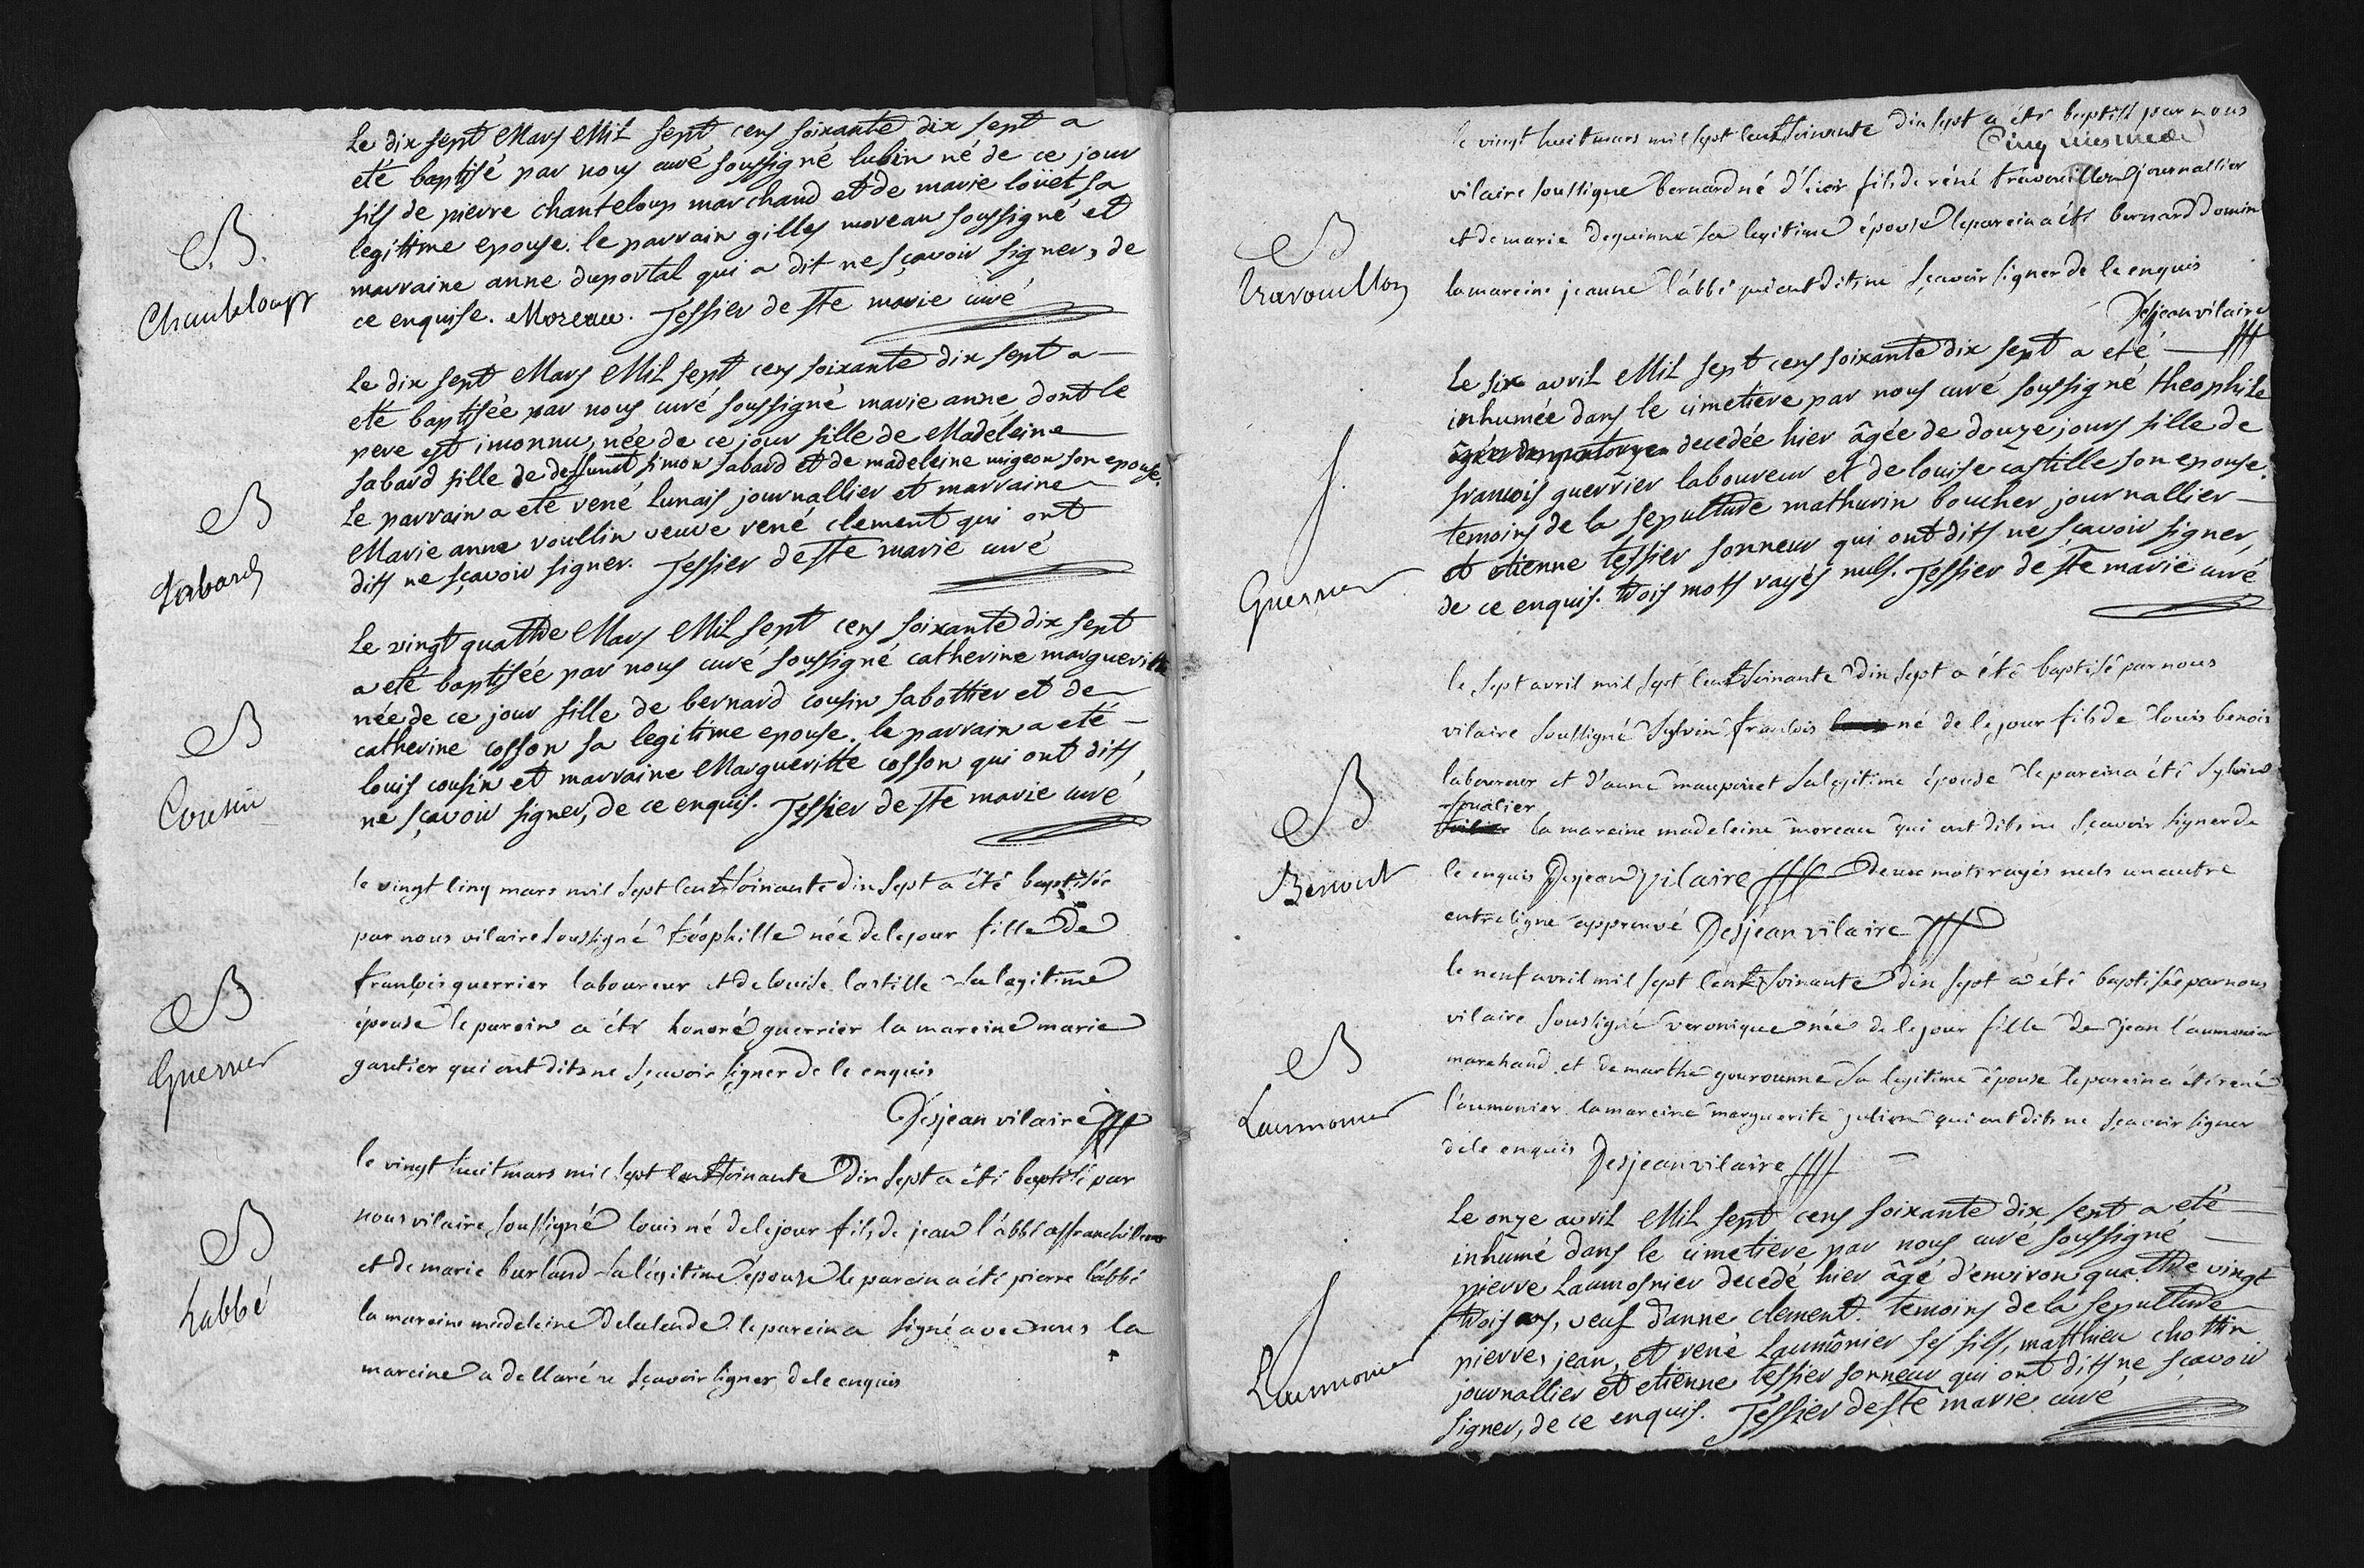 B.
Chanteloup
Le dix sept Mars Mil sept cens soixante dix sept a
eté baptisé par nous curé soussigné lubin né de ce jour
fils de pierre chanteloup marchand et de marie loüet sa
legitime epouse. le parrain gilles moreau soussigné et
marraine anne duportal qui a dit ne sçavoir signer, de
ce enquise. Moreau. Tessier de Ste marie curé
B
Sabard
Le dix sept Mars Mil sept cens soixante dix sept a
eté baptisée par nous curé soussigné marie anne dont le
pere est inconnu, née de ce jour fille de Madeleine
sabard fille de deffunt simon sabard et de madeleine migeon son epouse.
Le parrain a eté rené lunais journallier et marraine
Marie anne voullin veuve rené clement qui ont
dits ne sçavoir signer. Tessier de Ste marie curé
B
Cousin
Le vingt quattre Mars Mil sept cens soixante dix sept
a eté baptisée par nous curé soussigné catherine margueritte
née de ce jour fille de bernard cousin sabottier et de
catherine cosson sa legitime epouse. le parrain a eté
louis cousin et marraine Margueritte cosson qui ont dits
ne sçavoir signer, de ce enquis. Tessier de Ste marie curé
B
Guerrier
le vingt cinq mars mil sept cent soixante dix sept a été baptisée
par nous vicaire soussigné téophille née de ce jour fille de
françois guerrier laboureur et de louise castille sa legitime
épouse le parein a été honoré guerrier la mareine marie
gautier qui ont dits ne sçavoir signer de ce enquis
Desjean vicaire
B
Labbé
le vingt huit mars mil sept cent soixante dix sept a été baptisé par
nous vicaire soussigné louis né de ce jour fils de jean l'abbé
et de marie burland sa légitime épouse le parein a été pierre l'abbé
la mareine madeleine delalande le parein a signé avec nous la
mareine a déclaré ne sçavoir signer de ce enquis
le vingt huit mars mil sept cent soixante dix sept a été baptisé par nous
B
Travouillon
vicaire soussigné bernard né d'hier fils de réné travouillon journallier
et de marie dequinne sa legitime épouse le parein a été bernard domin
la mareine jeanne l'abbé qui ont dits ne sçavoir signer de ce enquis
Desjean vicaire
S.
Guerrier
Le six avril Mil sept cens soixante dix sept a eté
inhumée dans le cimetiere par nous curé soussigné theophile
decedée hier âgée de douze jours fille de
françois guerrier laboureur et de louise castille son epouse.
temoins de la sepulture mathurin boucher journallier
et etienne tessier sonneur qui ont dits ne sçavoir signer,
de ce enquis. trois mots rayés nuls. Tessier de Ste marie curé
B
Benoist
le sept avril mil sept cent soixante dix sept a été baptisé par nous
vicaire soussigné sylvin françois né de ce jour fils de louis benois
laboureur et d'anne maupoiret sa legitime épouse le parein a été sylvin
soualier
la mareine madeleine moreau qui ont dits ne sçavoir signer de
ce enquis Desjean vicaire deux mots rayés nuls un autre
entreligne approuvé Desjean vicaire
B
Laumonier
le neuf avril mil sept cent soixante dix sept a été baptisée par nous
vicaire soussigné veronique née de ce jour fille de jean l'aumonier
marchand et de marthe gourounne sa legitime épouse le parein a été rené
l'aumonier la mareine marguerite julien qui ont dits ne sçavoir signer
de ce enquis Desjean vicaire
S
Laumonier
Le onze avril Mil sept cens soixante dix sept a eté
inhumé dans le cimetiere par nous curé soussigné
pierre Laumosnier decedé hier âgé d'environ quattre vingt
trois ans, veuf d'anne clement. temoins de la sepulture
pierre, jean, et rené Laumônier ses fils, matthieu chottin
journallier et etienne tessier sonneur qui ont dits ne sçavoir
signer, de ce enquis. Tessier de Ste marie curé